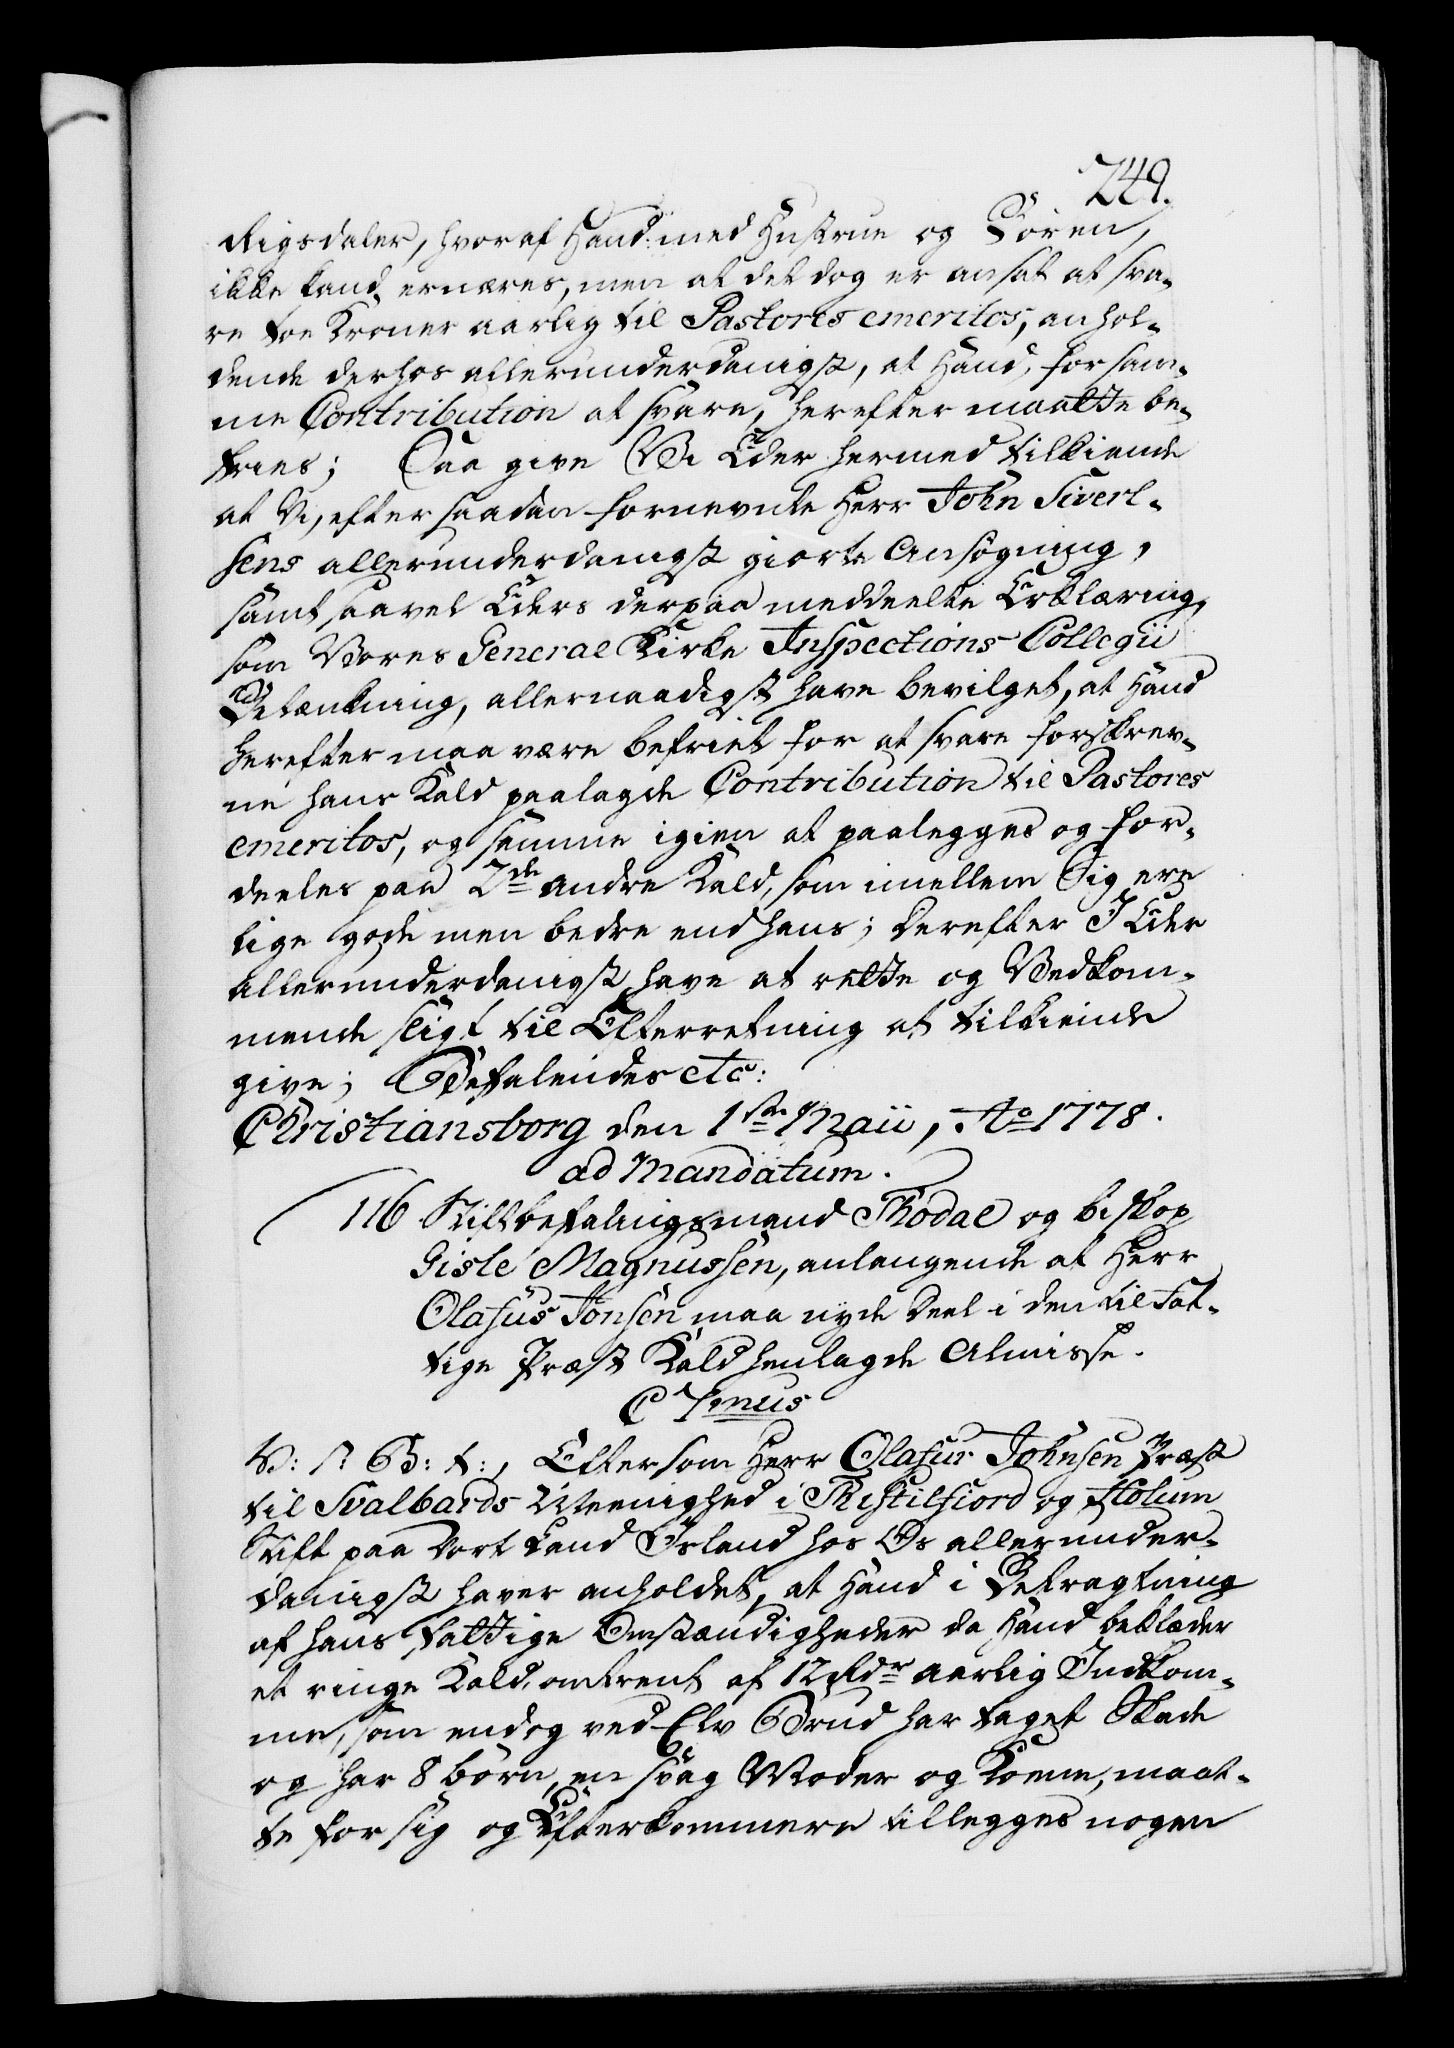 249.
Rigsdaler, hvoraf Hand med Hustrue og Börn,
ikke kand ernæres, men at det dog er ansat at sva-
re toe Kroner aarlig til Pastores emeritos, anhol-
dende derhos allerunderdanigst, at Hand, for sam-
me Contribution at svare, herefter maatte be-
fries; Saa give Vi Eder hermed tilkiende
at Vi, efter saadan fornevnte Herr John Siverl-
sens allerunderdanigst giorte Ansögning,
samt saavel Eders derpaa meddeelte Erklæring,
som Vores General Kirke Inspections Collegii
Betænkning, allernaadigst have bevilget, at Hand
herefter maa være befriet for at svare forskrev-
ne hans Kald paalagde Contribution til Pastores
emeritos, og samme igien at paalegges og for-
deeles paa 2de andre Kald, som imellem Sig ere
lige gode men bedre end hans; Derefter I Eder
allerunderdanigst have at rette og Vedkom-
mende sligt til Efterretning at tilkiende
give; Befalendes etc:
Christiansborg den 1ste Maii, Ao 1778.
ad Mandatum.
116 Stiftbefalingsmand Thodal og biskop
Gisle Magnussen, anlangende at Herr
Olafus Jonsen maa nyde Deel i den til Fat-
tige Præst Kald henlagde Almisse.
C 7mus
V: S: G: t:, Eftersom Herr Olafur Johnsen Præst
til Svalbards Meenighed i Thistilfiord og Holum
Stift paa Vort Land Island hos Os allerunder-
danigst haver anholdet, at Hand i Betragtning
af hans fattige Omstændigheder da Hand beklæder
et ringe Kald, omtrent af 12 Rdr aarlig Indkom-
me, som endog ved Elv Brud har taget Skade
og har 8 börn, en svag Moder og Kone, maat-
te for sig og Efterkommere tillegges nogen